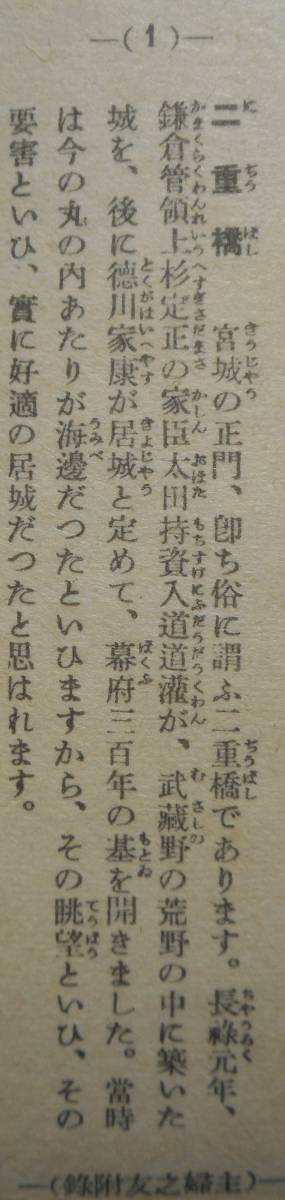 —( 1 )—
二重橋 宮城の正門、卽ち俗に謂ふ二重橋であります。長祿元年、
鎌倉管領上杉定正の家臣太田持資入道道灌が、武藏野の荒野の中に築いた
城を、後に德川家康が居城と定めて、幕府三百年の基を開きました。當時
は今の丸の內あたりが海邊だつたといひますから、その眺望といひ、その
要害といひ、實に好適の居城だつたと思はれます。
—(主婦之友附錄)—